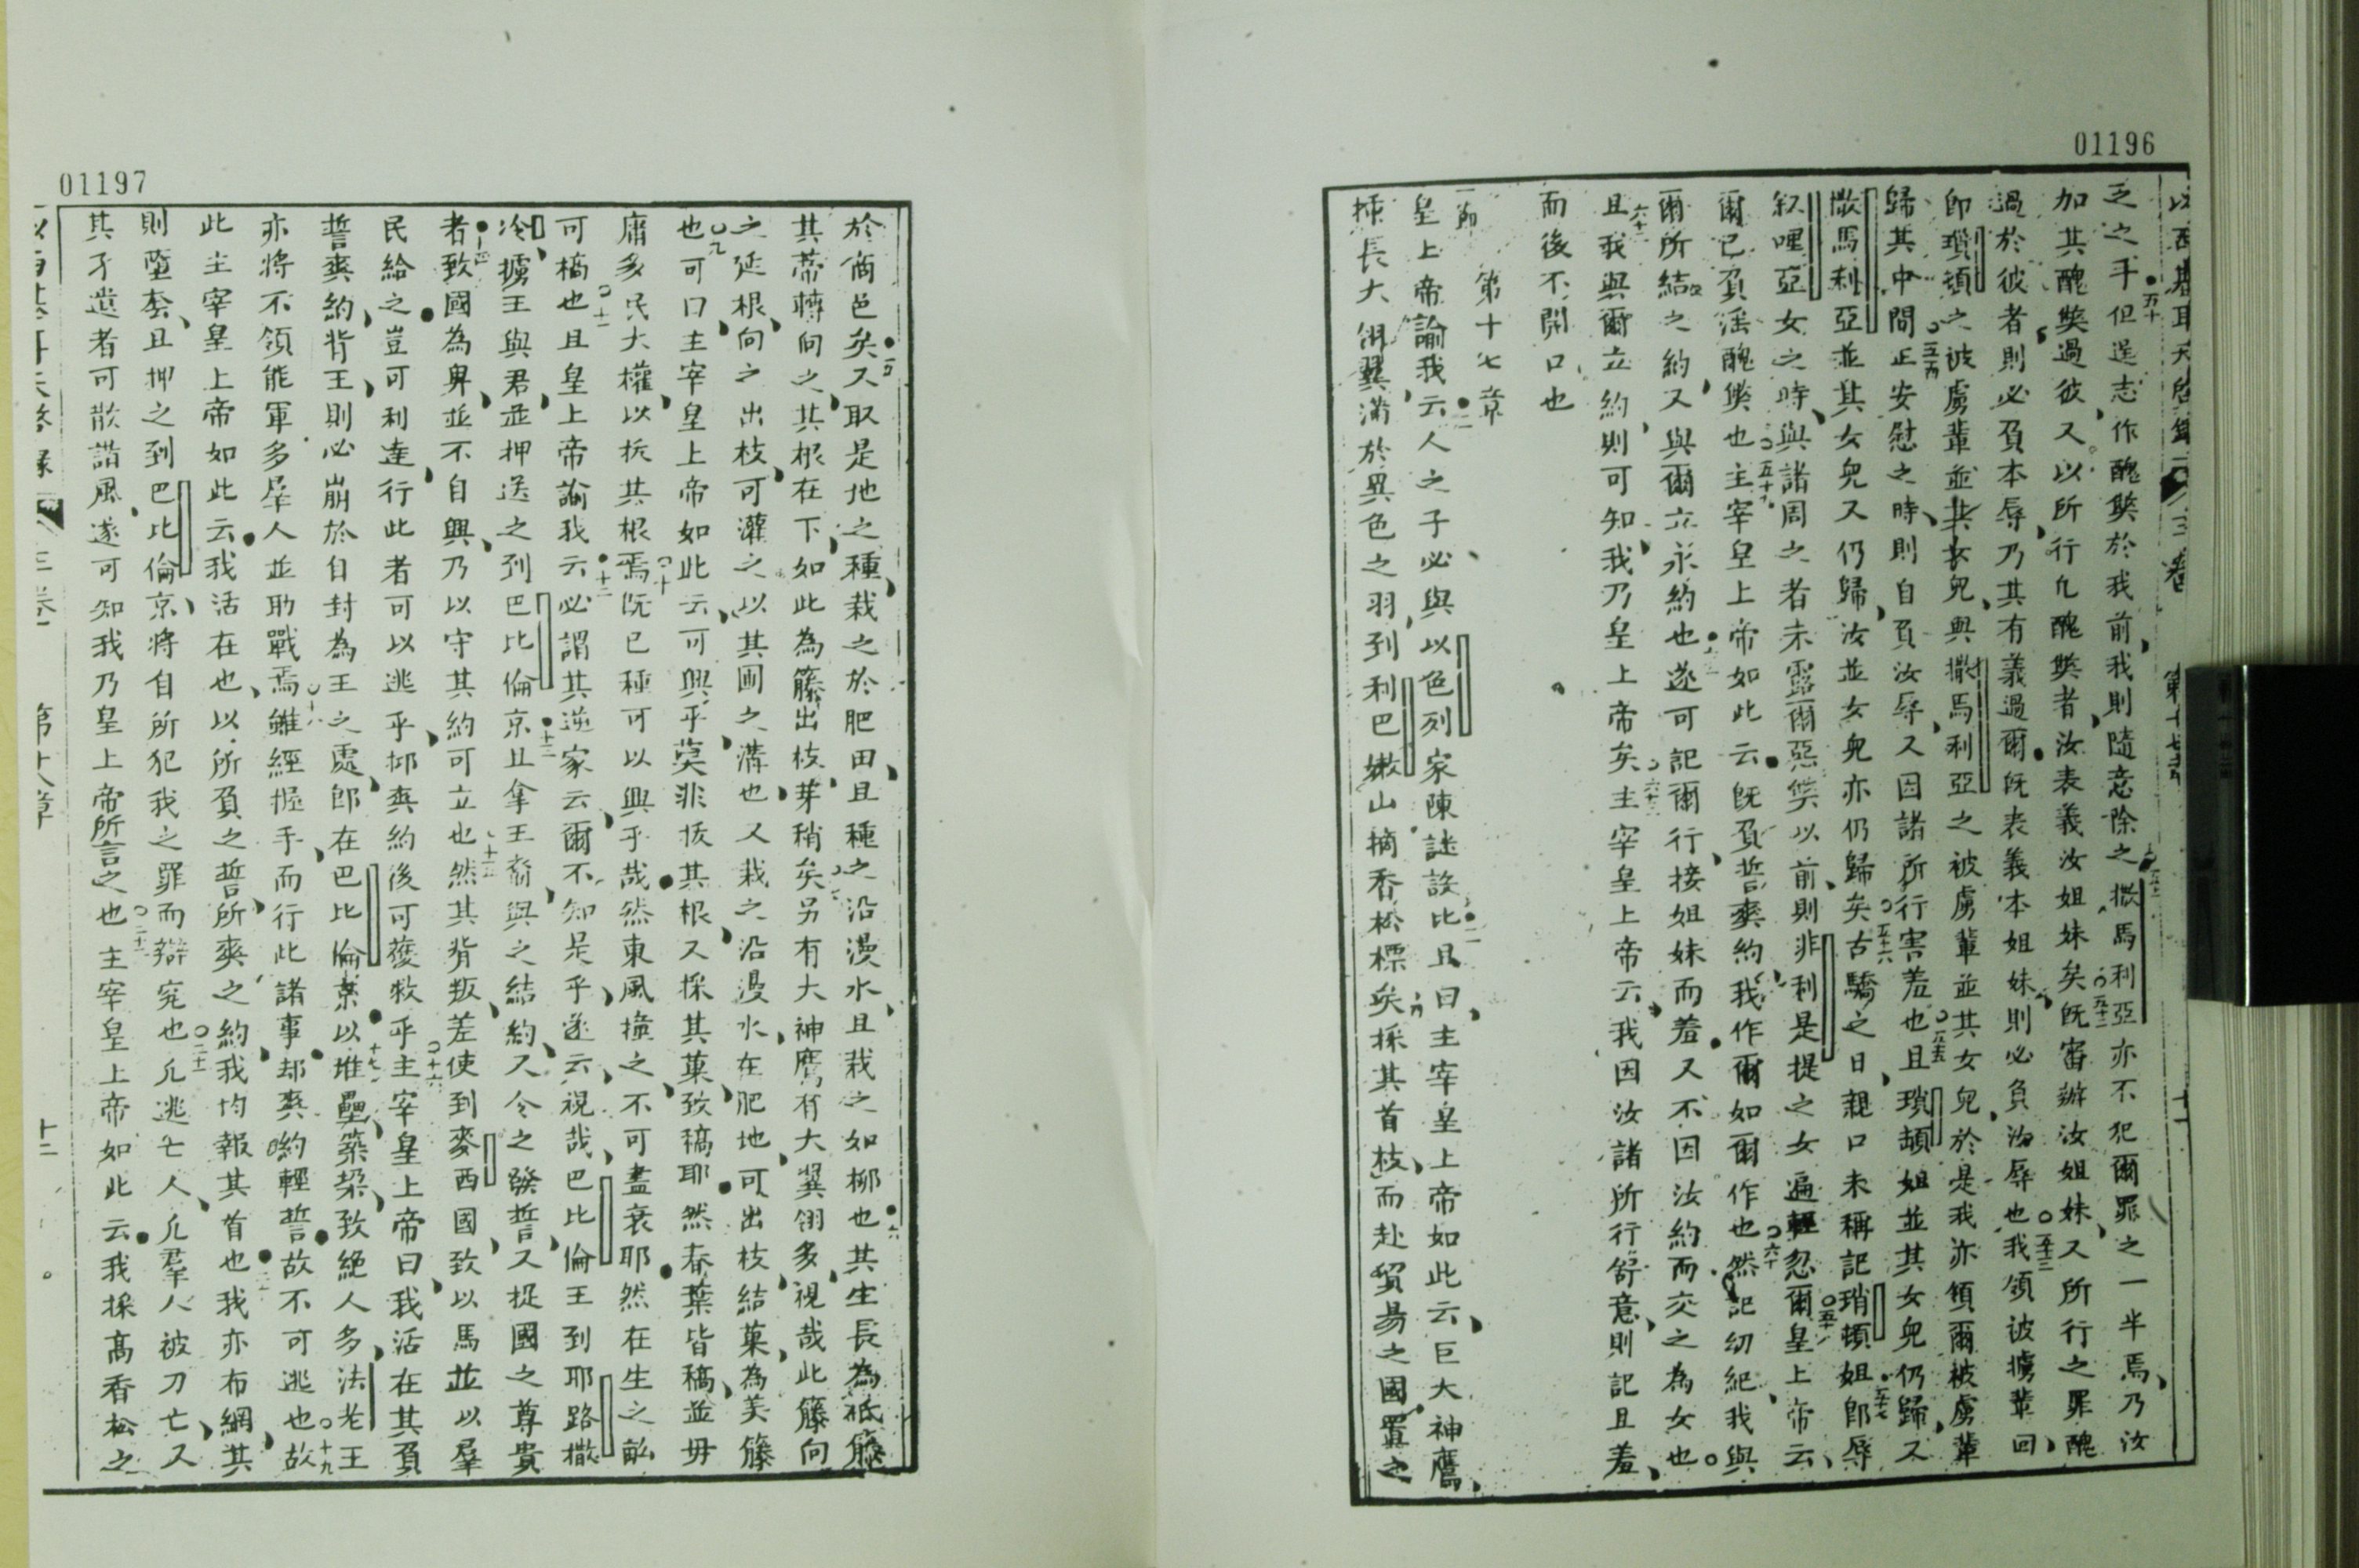 01196
乏之手但逞志作醜獘於我前我則隨意除之撒馬利亞亦不犯爾罪之一半焉乃汝
加其醜獘過彼又以所行凢醜獘者汝表義汝姐妹矣旣審辦汝姐妹又所行之罪醜
過於彼者則必負本辱乃其有義過爾旣表義本姐妹則必負汝辱也我領彼擄輩回
即瑣頓之被虜輩並其女兒與撒馬利亞之被虜輩並其女兒於是我亦領爾被虜輩
歸其中間正安慰之時則自負汝辱又因諸所行害羞也且瑣頓姐並其女兒仍歸又
撒馬利亞並其女兒又仍歸汝並女兒亦仍歸矣古驕之日親口未稱記瑣頓姐即辱
叙哩亞女之時與諸周之者未露爾惡獘以前則非利是提之女遍輕忽爾皇上帝云
爾已負淫醜獘也主宰皇上帝如此云旣負誓爽約我作爾如爾作也然記幼紀我與
爾所結之約又與爾立永約也遂可記爾行接姐妹而羞又不因汝約而交之為女也
且我與爾立約則可知我乃皇上帝矣主宰皇上帝云我因汝諸所行舒意則記且羞
而後不開口也
第十七章
皇上帝諭我云人之子必與以色列家陳謎設比且曰主宰皇上帝如此云巨大神鷹
挿長大翎翼滿於異色之羽到利巴嫩山摘香松標矣採其首枝而赴貿易之國置之
01197
於商邑矣又取是地之種栽之於肥田且種之沿漫水且栽之如柳也其生長為低籐
其蒂轉向之其根在下如此為籐出枝芽稍矣另有大神鷹有大翼翎多視哉此籐向
之延根向之出枝可灌之以其圃之溝也又栽之沿漫水在肥地可出枝結菓為美籐
也可口主宰皇上帝如此云可興乎莫非拔其根又採其菓致稿耶然春葉皆稿並毋
庸多民大權以抜其根焉旣已種可以興乎哉然東風撞之不可盡衰耶然在生之畝
可槁也且皇上帝諭我云必謂其逆家云爾不知是乎遂云視哉巴比倫王到耶路撒
冷擄王與君並押送之到巴比倫京且拿王裔與之結約又令之發誓又捉國之尊貴
者致國為卑並不自興乃以守其約可立也然其背叛差使到麥西國致以馬並以羣
民給之豈可利達行此者可以逃乎抑爽約後可蒦救乎主宰皇上帝曰我活在其負
誓爽約背王則必崩於自封為王之處即在巴比倫京以堆壘築梁致絕人多法老王
亦將不領能軍多羣人並助戰焉雖經握手而行此諸事却爽約輕誓故不可逃也故
此主宰皇上帝如此云我活在也以所負之誓所爽之約我均報其首也我亦布網其
則墮套且押之到巴比倫京將自所犯我之罪而辯究也凢逃亡人凢羣人被刀亡又
其孑遺者可散諸風遂可知我乃皇上帝所言之也主宰皇上帝如此云我採高香松之